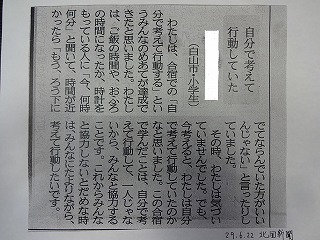 自分で考えて
行動していた
(白山市・小学生)
わたしは、合宿での「自
分で考えて行動する」とい
うみんなのめあてが達成で
きたと思いました。わたし
は、ご飯の時間や、おふろ
の時間になったか、時計を
もっている人に「今、何時
何分」と聞いて、時間が近
かったら「もう、ろう下に
でてならんでいた方がいい
んじゃない」と言ったりし
ていました。
その時、わたしは気づい
ていませんでした。でも、
今考えると、わたしは自分
で考えて行動していたのか
なと思いました。この合宿
で学んだことは、自分で考
えて行動して、一人じゃな
いから、みんなで協力する
ことです。これからみんな
と協力しないとだめな時
は、みんなにたよりながら、
考えて行動したいです。
29.6.22 北國新聞